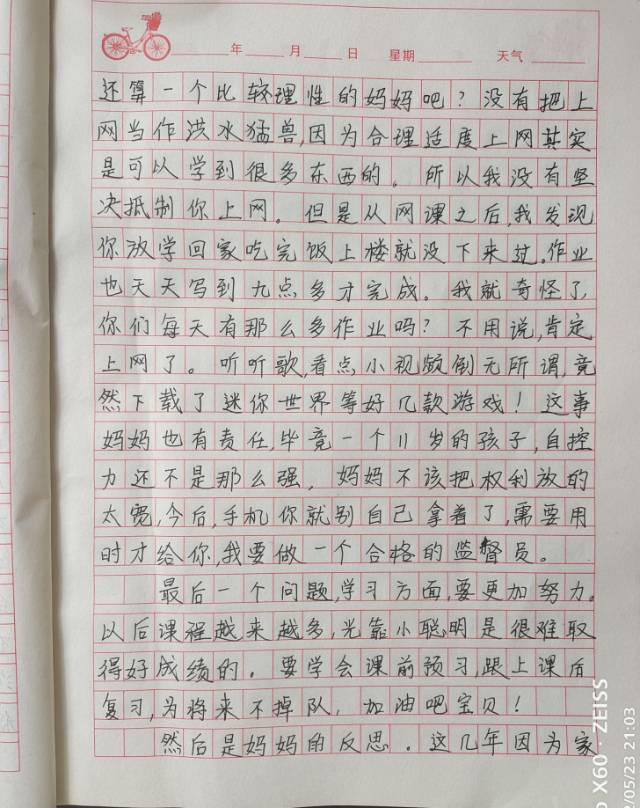 年 月 日 星期 天气
还算一个比较理性的妈妈吧？没有把上
网当作洪水猛兽,因为合理适度上网其实
是可以学到很多东西的。所以我没有坚
决抵制你上网。但是从网课之后,我发现
你放学回家吃完饭上楼就没下来过,作业
也天天写到九点多才完成。我就奇怪了,
你们每天有那么多作业吗？不用说,肯定
上网了。听听歌,看点小视频倒无所谓,竟
然下载了迷你世界等好几款游戏！这事
妈妈也有责任,毕竟一个11岁的孩子,自控
力还不是那么强,妈妈不该把权利放的
太宽,今后,手机你就别自己拿着了,需要用
时才给你,我要做一个合格的监督员。
最后一个问题,学习方面,要更加努力。
以后课程越来越多,光靠小聪明是很难取
得好成绩的。要学会课前预习,跟上课后
复习,为将来不掉队,加油吧宝贝！
然后是妈妈的反思。这几年因为家
X60 · ZEISS
/05/23 21:03